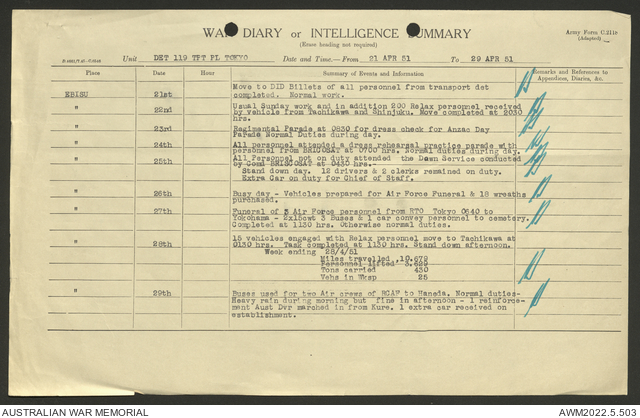 WAR DIARY or INTELLIGENCE SUMMARY
(Erase heading not required)
Army Form C.2118
(Adapted)
Unit DET 119 TPT PL TOKYO Date and Time—From 21 APR 51 To 29 APR 51
Place Date Hour Summary of Events and Information Remarks and References to Appendices, Diaries, &c.
Move to DID Billets of all personnel from transport det
EBISU 21st completed. Normal work.
" 22nd Usual Sunday work and in addition 200 Relax personnel received
by vehicle from Tachikawa and Shinjuku. Move completed at 2030
hrs.
" 23rd Regimental Parade at 0830 for dress check for Anzac Day
Parade Normal Duties during day.
" 24th All personnel attended a dress rehearsal practice parade with
personnel from BRICOSAT at 0700 hrs. Normal duties during day.
" 25th All Personnel not on duty attended the Dawn Service conducted
by Comd BRISCOSAT at 0430 hrs.-
Stand down day. 12 drivers & 2 clerks remained on duty.
Extra Car on duty for Chief of Staff.
" 26th Busy day - Vehicles prepared for Air Force Funeral & 18 wreaths
purchased.
" 27th Funeral of 3 Air Force personnel from RTO Tokyo 0640 to
Yokohama - 2x15cwt 3 Buses & 1 car convey personnel to cemetery.
Completed at 1130 hrs. Otherwise normal duties.
" 28th 15 vehicles engaged with Relax personnel move to Tachikawa at
0130 hrs. Task completed at 1130 hrs. Stand down afternoon.
Week ending 28/4/51
Miles travelled 10,679
Personnel lifted 3,829
Tons carried 430
Vehs in Wksp 25
" 29th Buses used for two Air crews of RCAF to Haneda. Normal duties-
Heavy rain during morning but fine in afternoon - 1 reinforce-
ment Aust Dvr marched in from Kure. 1 extra car received on
establishment.
AUSTRALIAN WAR MEMORIAL
AWM2022.5.503